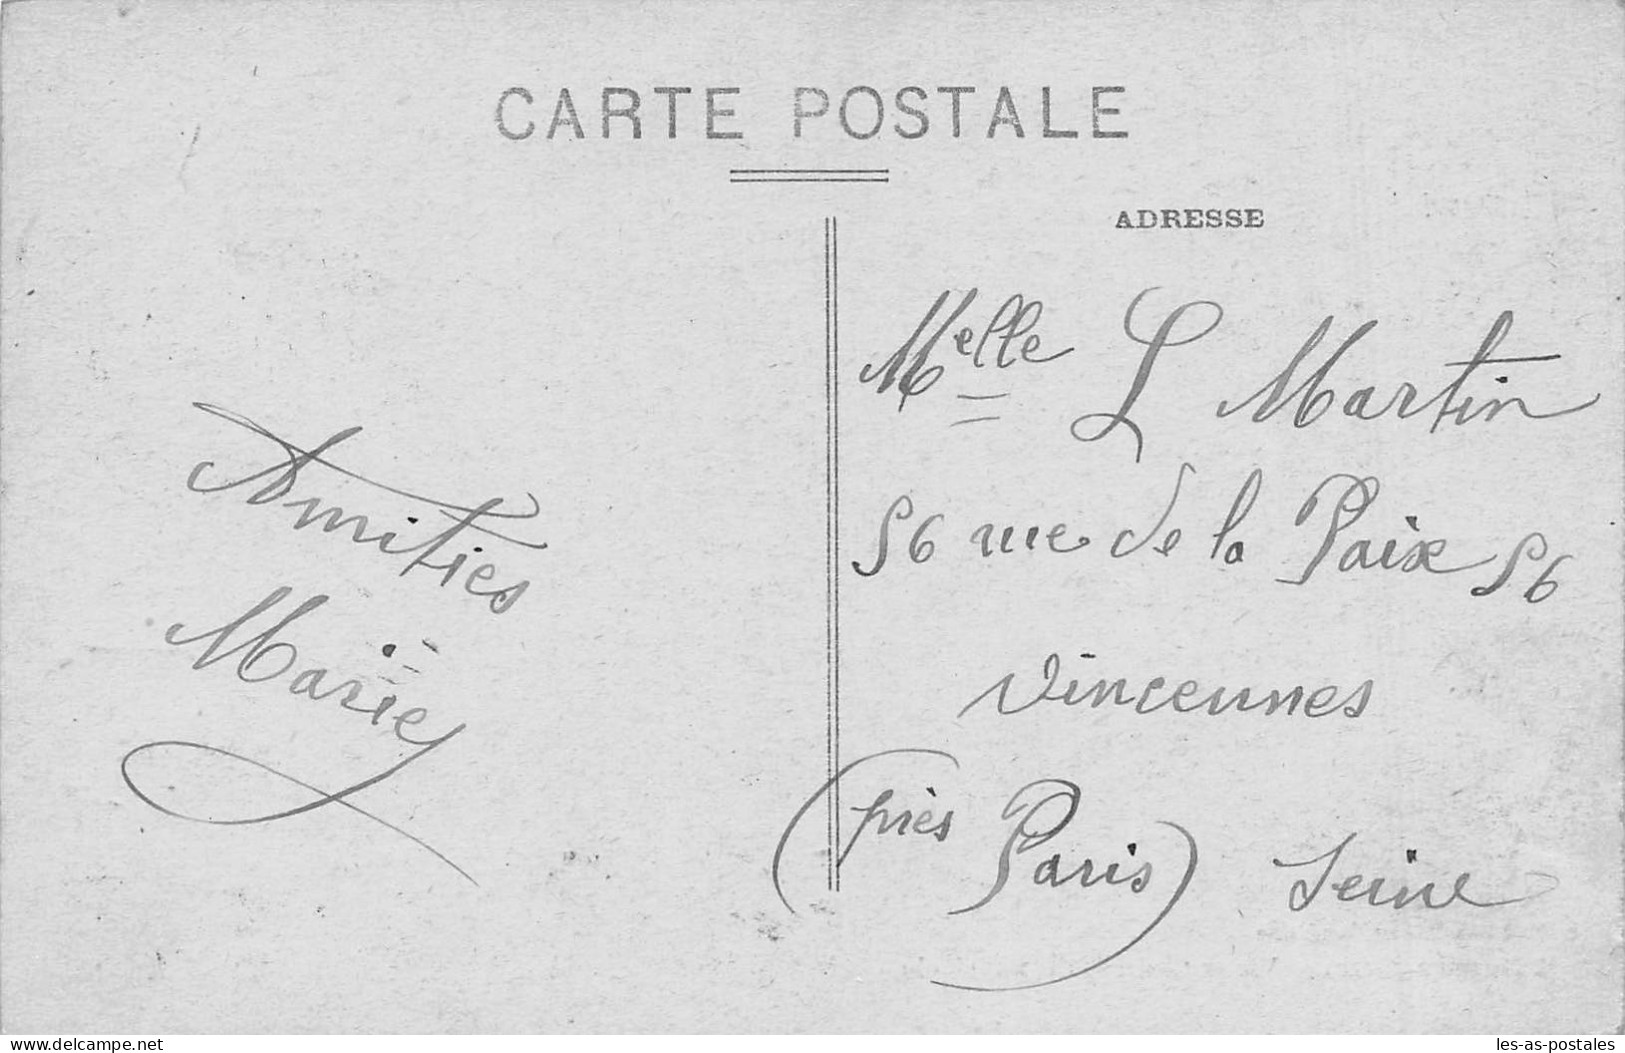 CARTE POSTALE
ADRESSE
Amities
Marie
Melle L Martin
56 rue de la Paix 56
Vincennes
(près Paris) Seine
www.delcampe.net
les-as-postales